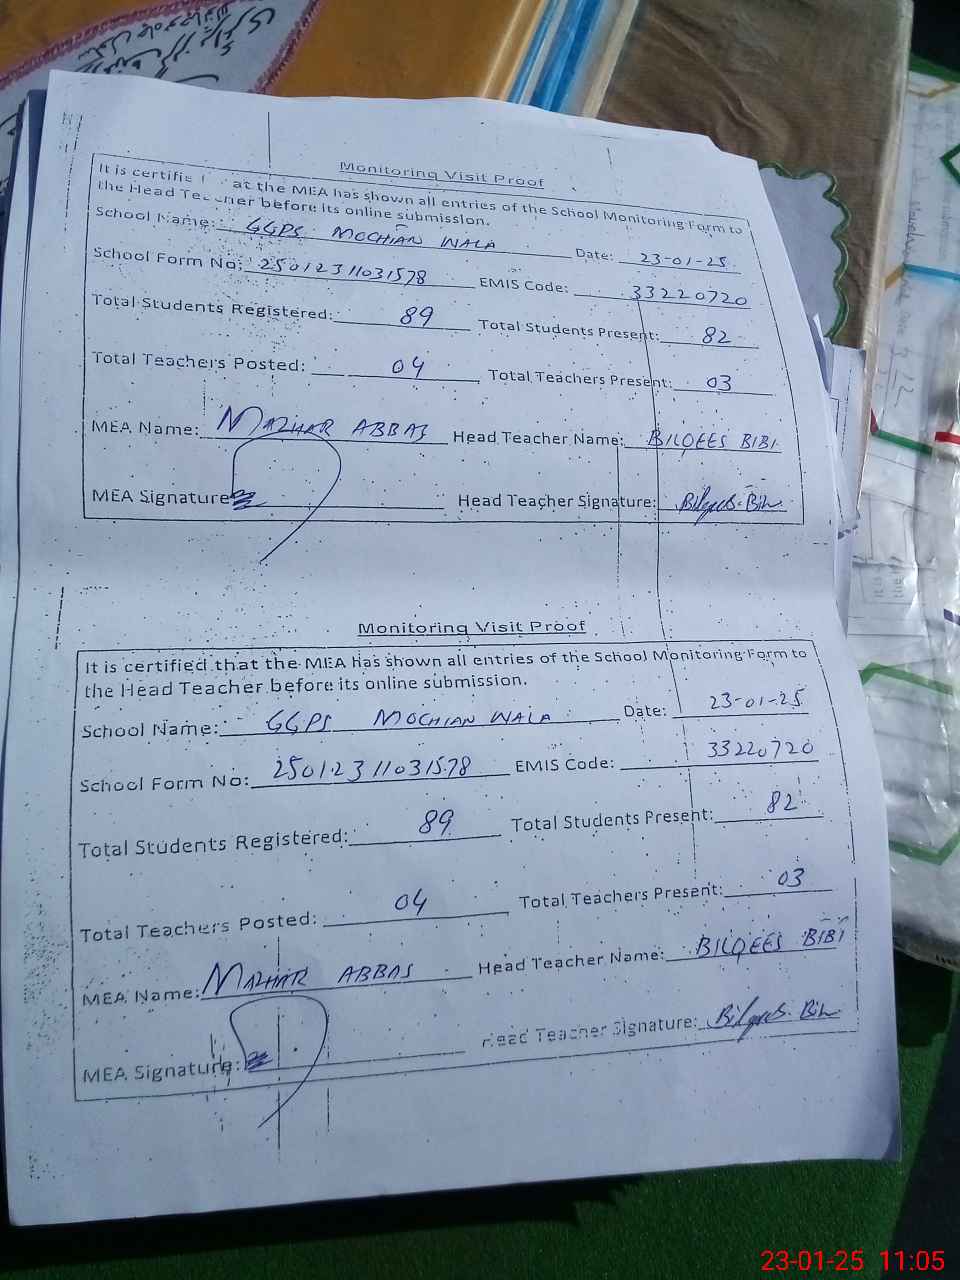 Monitoring Visit Proof
It is certifie at the MEA has shown all entries of the School Monitoring Form to
the Head Teacher before its online submission.
School Name: GGPS MOCHIAN WALA Date: 23-01-25
School Form No: 25012311031578 EMIS Code: 33220720
Total Students Registered: 89 Total Students Present: 82
Total Teachers Posted: 04 Total Teachers Present: 03
MEA Name: MAZHAR ABBAS Head Teacher Name: BILQEES BIBI
MEA Signature Head Teacher Signature: Bilqees Bibi
Monitoring Visit Proof
It is certified that the MEA has shown all entries of the School Monitoring Form to
the Head Teacher before its online submission.
School Name: GGPS MOCHIAN WALA Date: 23-01-25
School Form No: 25012311031578 EMIS Code: 33220720
Total Students Registered: 89 Total Students Present: 82
Total Teachers Posted: 04 Total Teachers Present: 03
MEA Name: MAZHAR ABBAS Head Teacher Name: BILQEES BIBI
MEA Signature: Head Teacher Signature: Bilqees Bibi
23-01-25 11:05